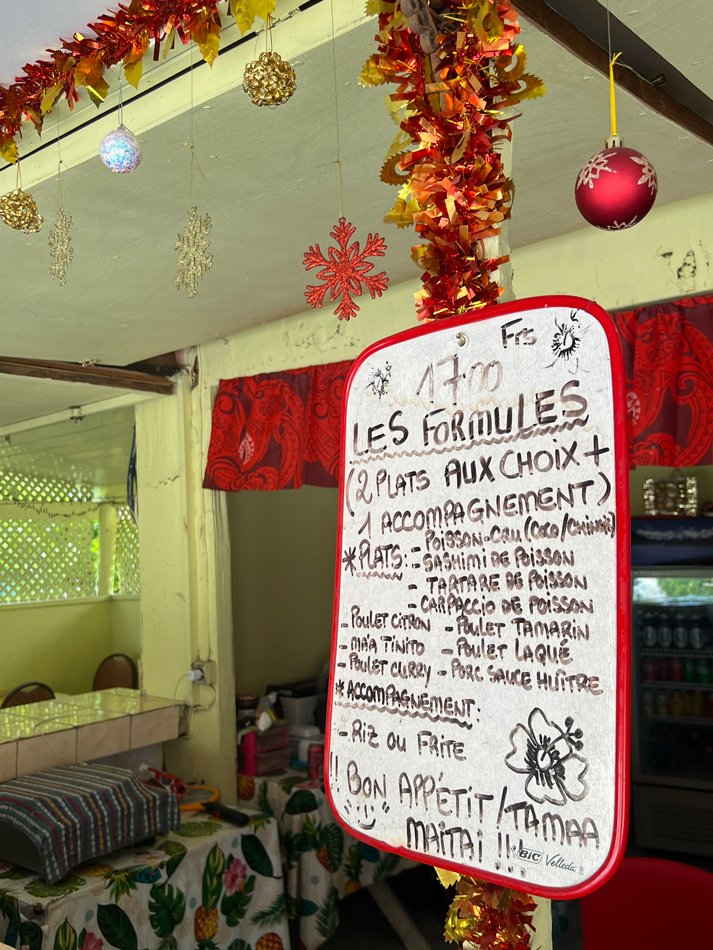 Frs
1700
LES FORMULES
(2 PLATS AUX CHOIX +
1 ACCOMPAGNEMENT)
*PLATS: - POISSON-CRU (COCO/CHINOIS)
- SASHIMI DE POISSON
- TARTARE DE POISSON
- CARPACCIO DE POISSON
- POULET CITRON - POULET TAMARIN
- MA'A TINITO - POULET LAQUÉ
- POULET CURRY - PORC SAUCE HUÎTRE
*ACCOMPAGNEMENT:
- RIZ OU FRITE
!! BON APPÉTIT / TAMAA
MAITAI !!
BIC Velleda